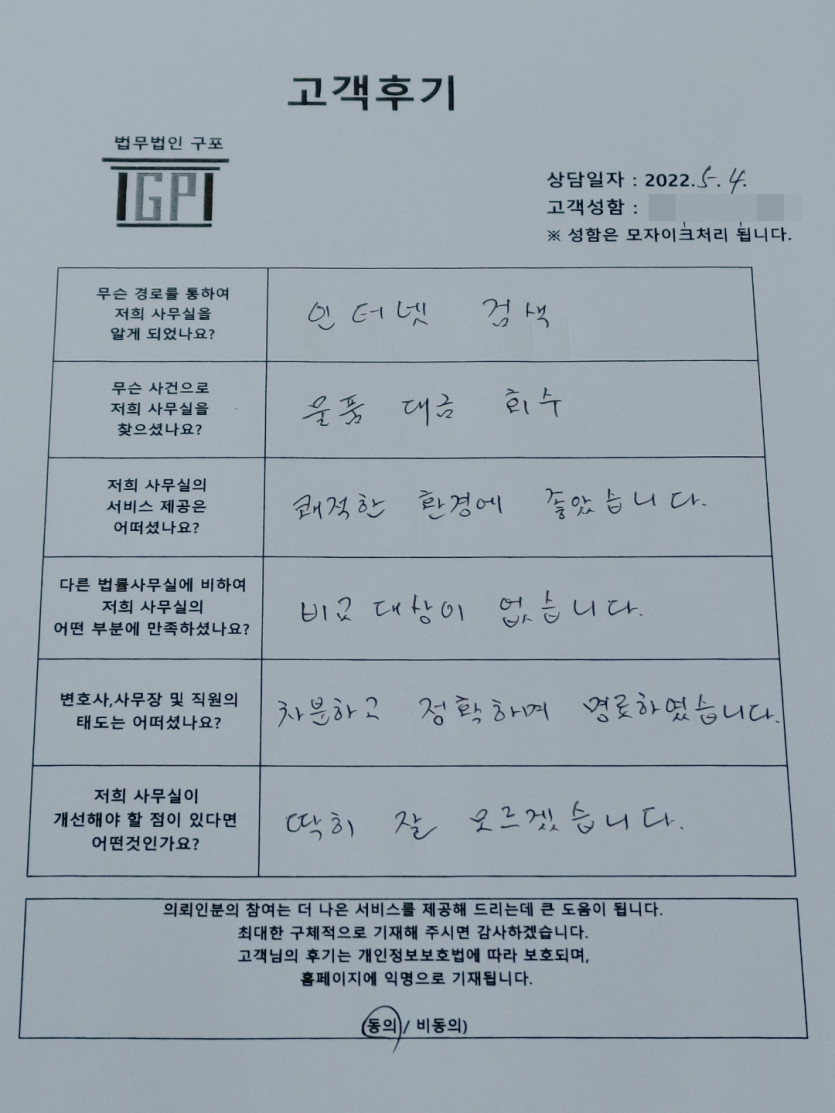 고객후기
법무법인 구포
IGPI
상담일자 : 2022. 5. 4.
고객성함 :
※ 성함은 모자이크처리 됩니다.
무슨 경로를 통하여
저희 사무실을
알게 되었나요?
인터넷 검색
무슨 사건으로
저희 사무실을
찾으셨나요?
물품 대금 회수
저희 사무실의
서비스 제공은
어떠셨나요?
쾌적한 환경에 좋았습니다.
다른 법률사무실에 비하여
저희 사무실의
어떤 부분에 만족하셨나요?
비교대상이 없습니다.
변호사,사무장 및 직원의
태도는 어떠셨나요?
차분하고 정확하며 명료하였습니다.
저희 사무실이
개선해야 할 점이 있다면
어떤것인가요?
딱히 잘 모르겠습니다.
의뢰인분의 참여는 더 나은 서비스를 제공해 드리는데 큰 도움이 됩니다.
최대한 구체적으로 기재해 주시면 감사하겠습니다.
고객님의 후기는 개인정보보호법에 따라 보호되며,
홈페이지에 익명으로 기재됩니다.
(동의 / 비동의)